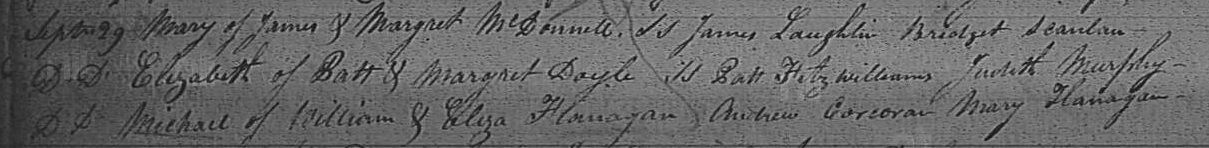 Septr 29 Mary of James & Margret McDonnell. Ss James Laughlin Bridget Scanlan
D D Elizabeth of Patt & Margret Doyle Ss Patt Fitzwilliams Judith Murphy
D D Michael of William & Eliza Flanagan Andrew Corcoran Mary Flanagan